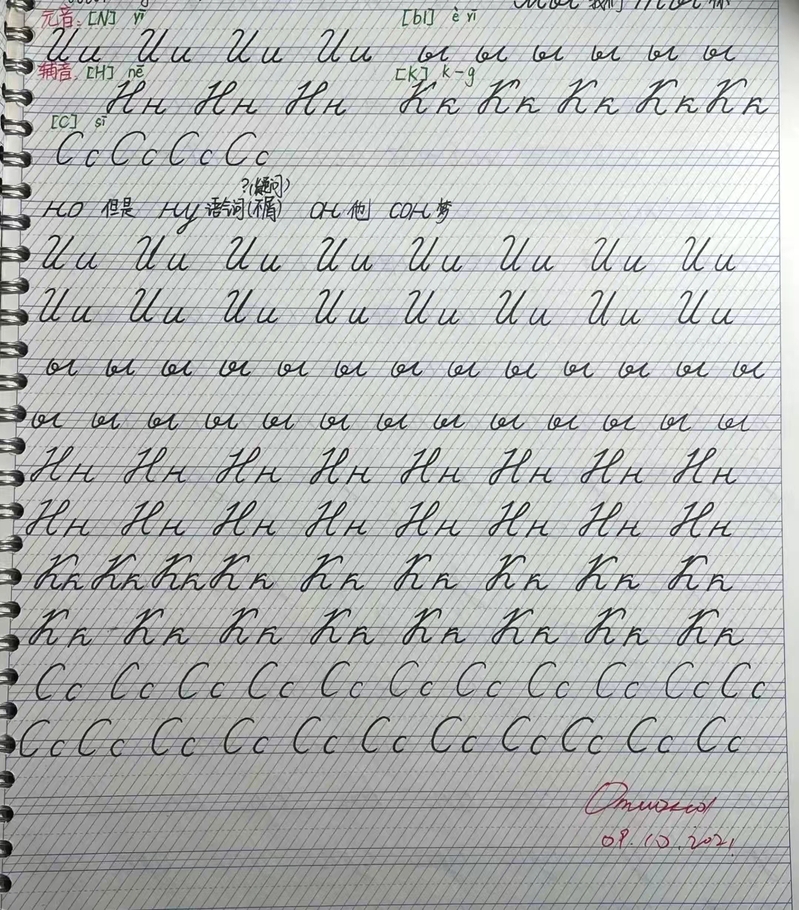 我们 你
元音: [N] yī [bl] è yī
Ии Ии Ии Ии ы ы ы ы ы ы
辅音: [H] nē [K] k-g
Нн Нн Нн Кк Кк Кк Кк Кк
[C] sī
Сс Сс Сс Сс
?(疑问)
но 但是 ну 语气词(不屑) он 他 сон 梦
Ии Ии Ии Ии Ии Ии Ии Ии
Ии Ии Ии Ии Ии Ии Ии Ии
ы ы ы ы ы ы ы ы ы ы ы ы ы
ы ы ы ы ы ы ы ы ы ы ы ы ы
Нн Нн Нн Нн Нн Нн Нн Нн
Нн Нн Нн Нн Нн Нн Нн Нн
Кк Кк Кк Кк Кк Кк Кк Кк Кк
Кк Кк Кк Кк Кк Кк Кк Кк
Сс Сс Сс Сс Сс Сс Сс Сс Сс Сс Сс
Сс Сс Сс Сс Сс Сс Сс Сс Сс Сс Сс
09.10.2021